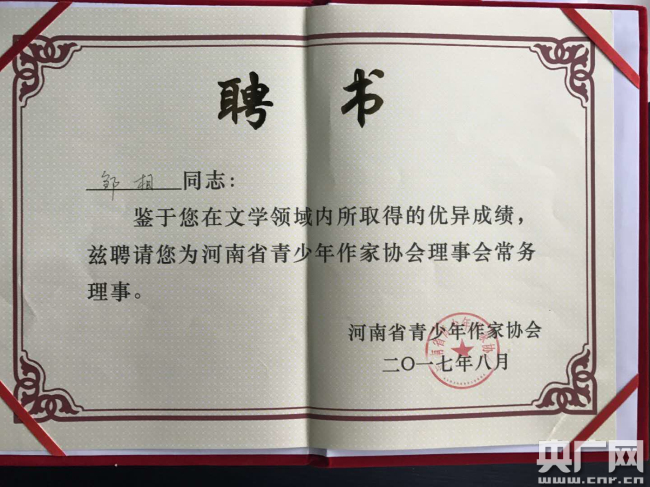 聘 书
邹 相 同志：
鉴于您在文学领域内所取得的优异成绩，
兹聘请您为河南省青少年作家协会理事会常务
理事。
河南省青少年作家协会
二〇一七年八月
央广网
www.cnr.cn